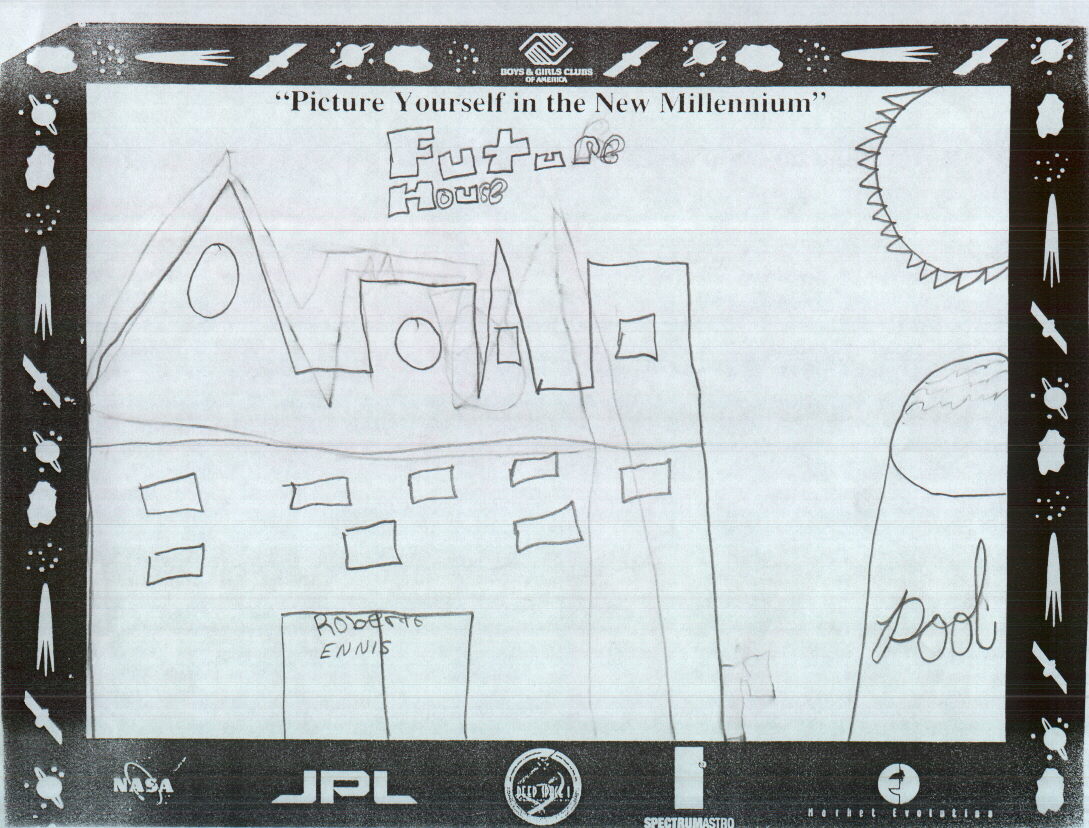 BOYS & GIRLS CLUBS
OF AMERICA
“Picture Yourself in the New Millennium”
Future
House
Roberto
ENNIS
pool
NASA
JPL
DEEP SPACE 1
SPECTRUMASTRO
Market Evolution